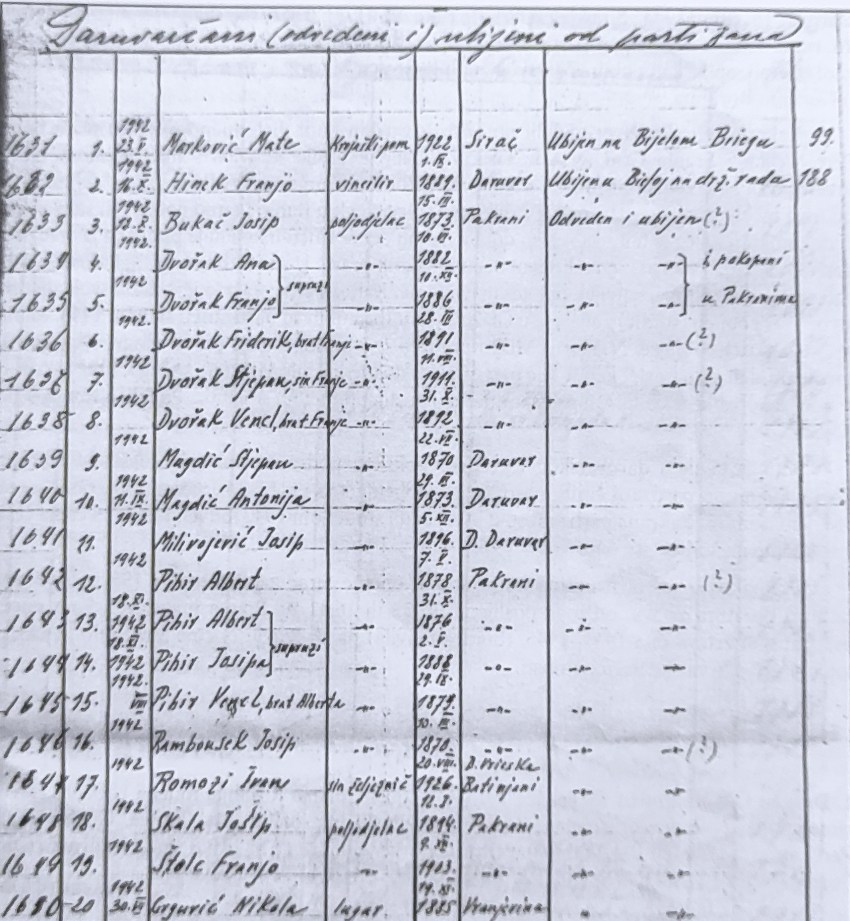 Daruvarčani (odvedeni i) ubijeni od partizana
1631 1. 1942 23.V. Marković Mate 1922 Sirač Ubijen na Bijelom Briegu 99.
1632 2. 1942 16.X. Hinek Franjo vincilir 1889. Daruvar Ubijen u 188
1633 3. 1942 12.X. Bukač Josip poljodjelac 1873. Pakrani Odviden i ubijen (?)
1634 4. 1942. Dvořak Ana } supruzi -"- 1882 -"- -"- -"- } i pokopani
1635 5. 1942 Dvořak Franjo -"- 1886 -"- -"- -"- u Pakranima
1636 6. 1942. Dvořak Friderik, brat Franje -"- 1891 -"- -"- -"- (?)
1637 7. 1942 Dvořak Stjepan, sin Franje -"- 1911. -"- -"- -"- (?)
1638 8. 1942 Dvořak Vencl, brat Franje -"- 1892 -"- -"- -"-
1639 9. 1942 Magdić Stjepan -"- 1870 Daruvar -"- -"-
1640 10. 1942 11.IX. Magdić Antonija -"- 1873. Daruvar -"- -"-
1641 11. 1942 Milivojević Josip -"- 1896. D. Daruvar -"- -"-
1642 12. 1942 Pibir Albert -"- 1878. Pakrani -"- -"- (?)
1643 13. 18.XI. 1942 Pibir Albert } supruzi -"- 1876 -"- -"- -"-
1644 14. 18.XI. 1942 Pibir Josipa -"- 1888 -"- -"- -"-
1645 15. 1942. VIII Pibir Vencl, brat Alberta -"- -"- -"- -"-
1646 16. 1942 Rambousek Josip -"- 1870. -"- -"- -"- (?)
1647 17. 1942 Romozi Ivan sin željeznič 1926. D. Vrieska Batinjani -"- -"-
1648 18. 1942 Skala Josip poljodjelac 1894. Pakrani -"- -"-
1649 19. 1942 Štolc Franjo -"- 1903. -"- -"- -"-
1650 20 1942 30.VI Grgurić Nikola lugar 1885 Vranjevina -"- -"-